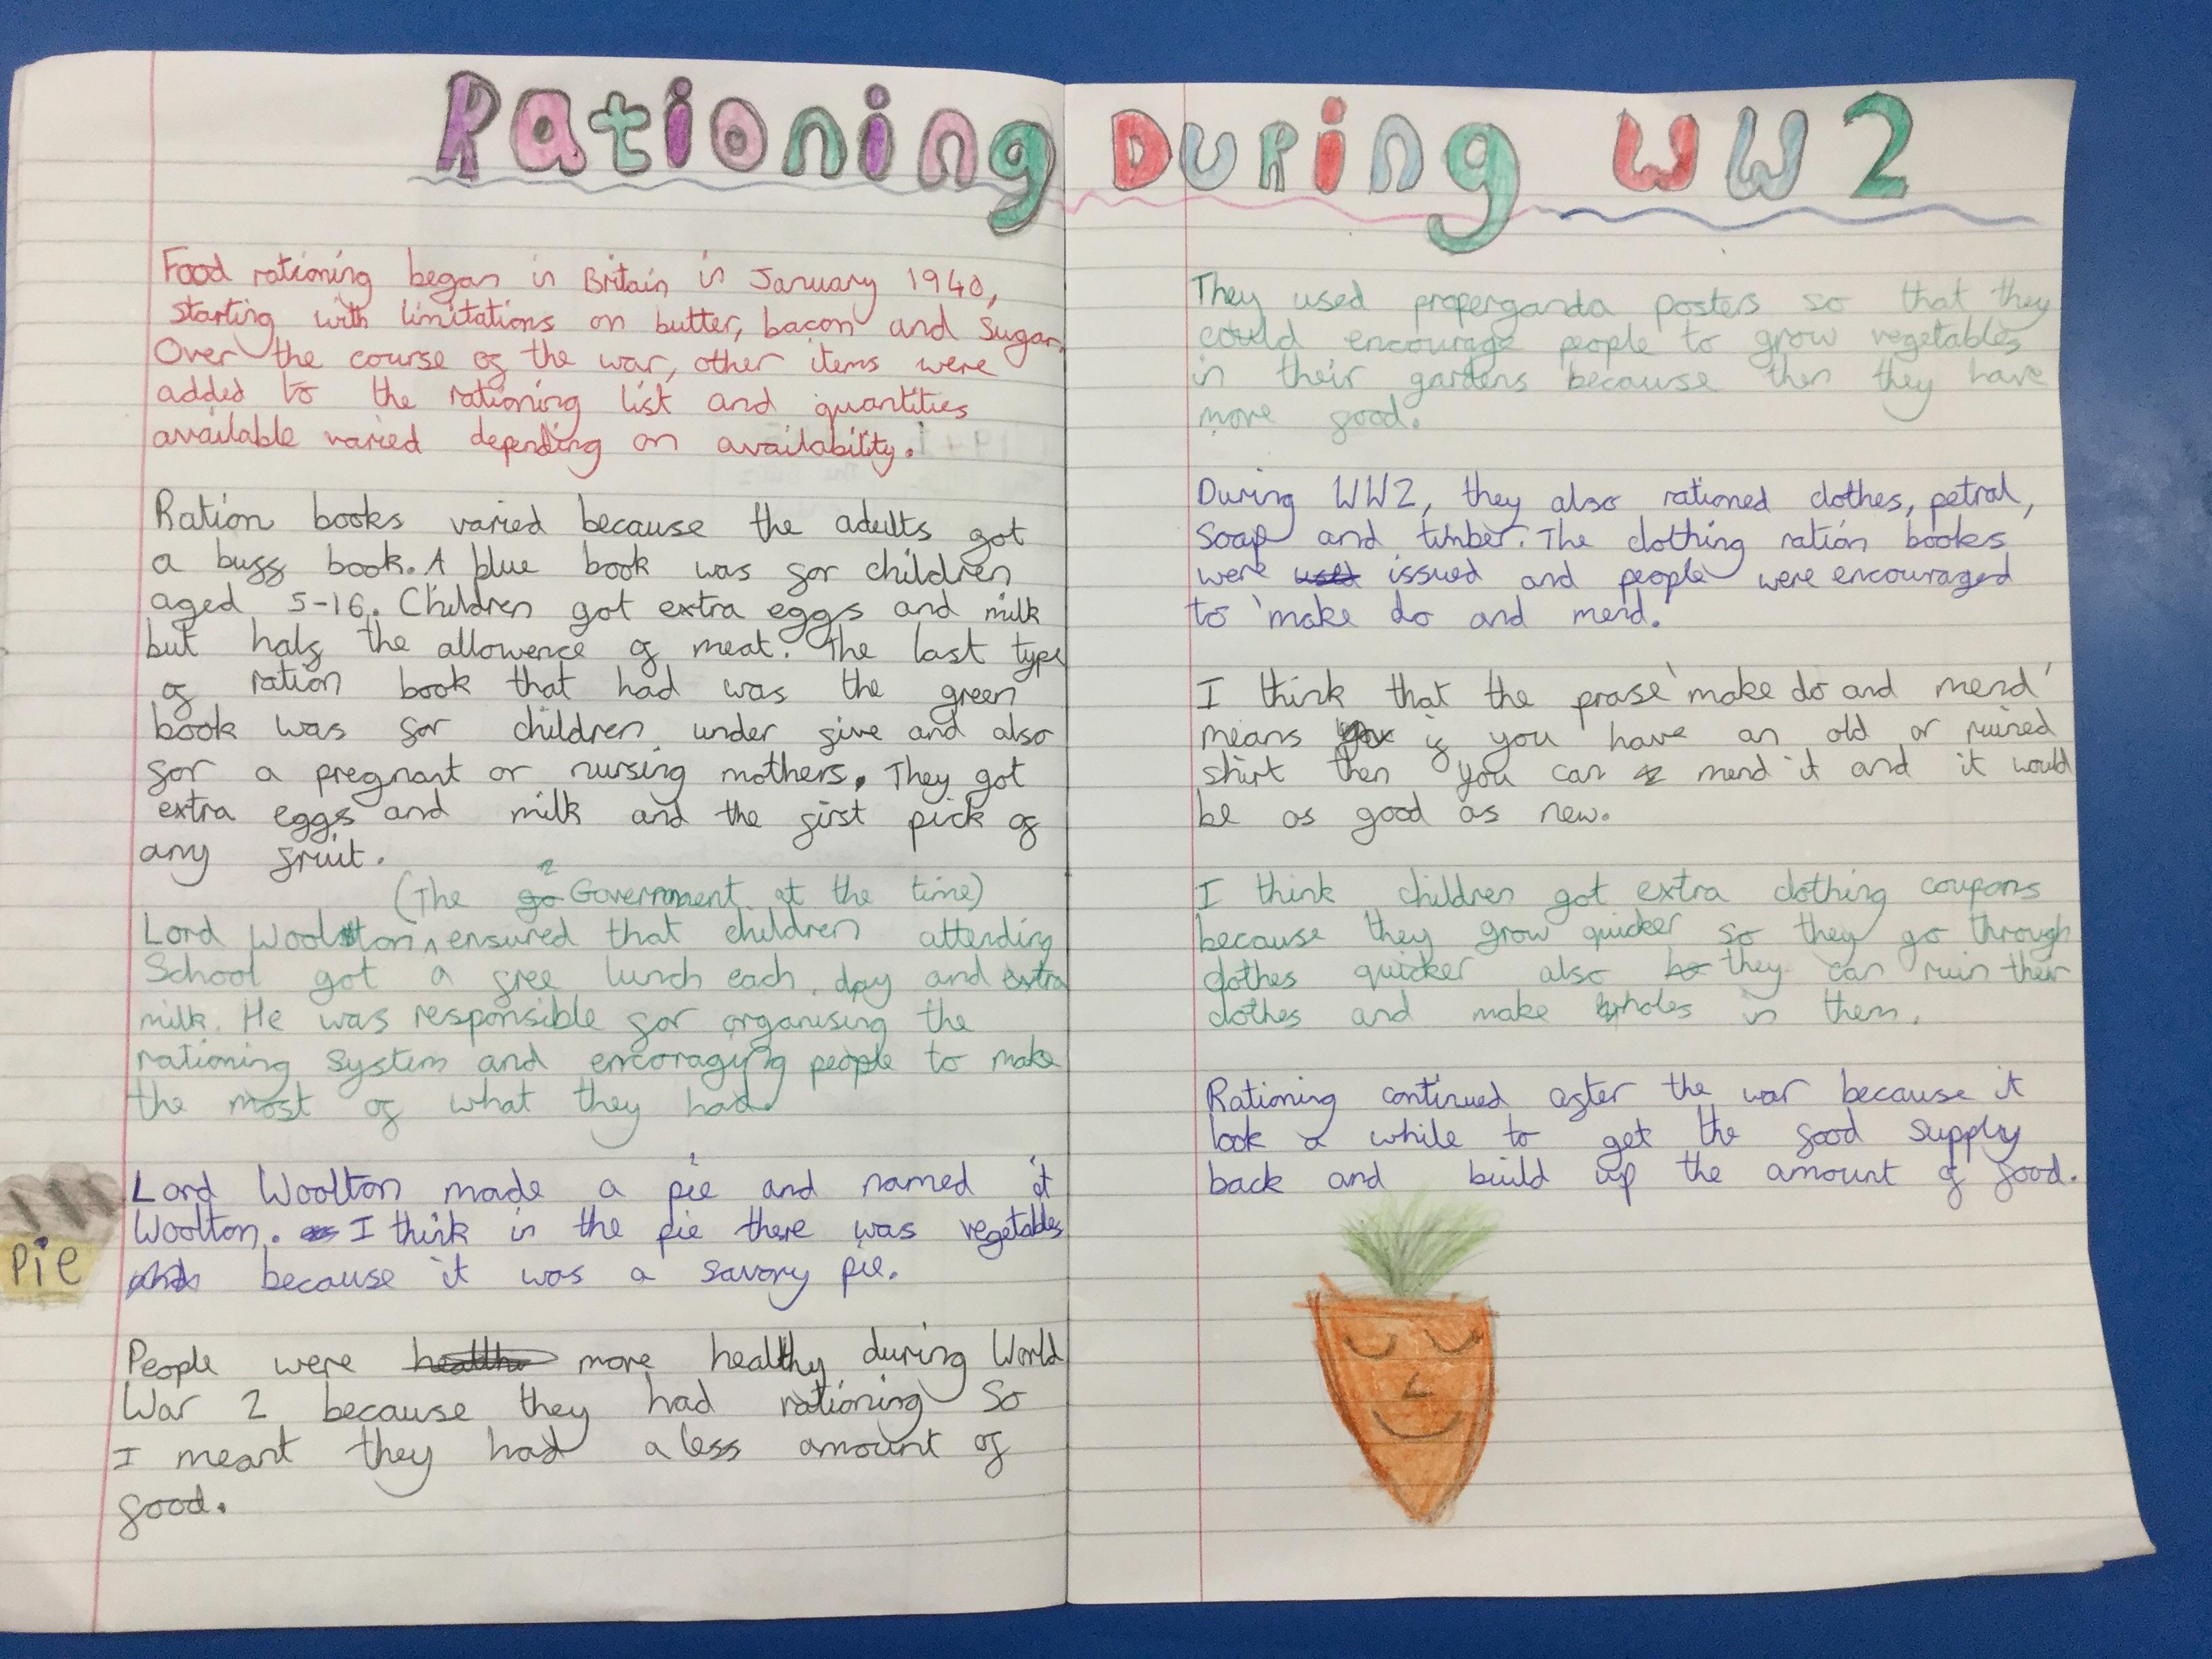 Rationing During WW2
Food rationing began in Britain in January 1940,
starting with limitations on butter, bacon and sugar.
Over the course of the war, other items were
added to the rationing list and quantities
available varied depending on availability.
Ration books varied because the adults got
a buff book. A blue book was for children
aged 5-16. Children got extra eggs and milk
but half the allowence of meat. The last type
of ration book that had was the green
book was for children under five and also
for a pregnant or nursing mothers. They got
extra eggs and milk and the first pick of
any fruit.
(The Government at the time)
Lord Woolton ensured that children attending
School got a free lunch each day and extra
milk. He was responsible for organising the
rationing system and encoraging people to make
the most of what they had.
Lord Woolton made a pie and named it
Woolton. I think in the pie there was vegetables
because it was a savory pie.
Pie
People were more healthy during World
War 2 because they had rationing So
I meant they had a less amount of
food.
They used properganda posters so that they
could encourage people to grow vegetables
in their gardens because then they have
more food.
During WW2, they also rationed clothes, petral,
soap and timber. The clothing ration books
were issued and people were encouraged
to 'make do and mend.'
I think that the prase 'make do and mend'
means if you have an old or ruined
shirt then you can mend it and it would
be as good as new.
I think children got extra clothing coupons
because they grow quicker so they go through
clothes quicker also they can ruin their
clothes and make holes in them.
Rationing continued after the war because it
look a while to get the food supply
back and build up the amount of food.